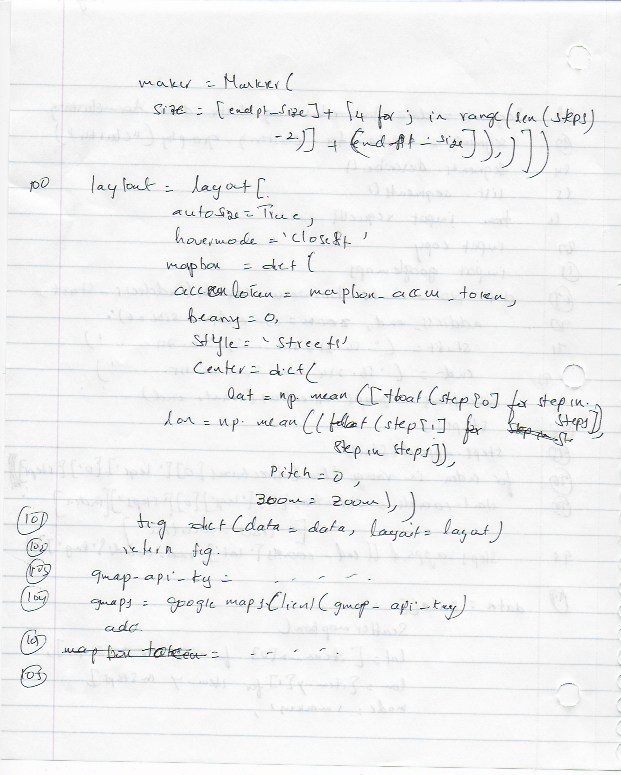 maker = Marker(
size = [endpt-size] + [4 for j in range(len(steps)
-2)] + [end-pt-size]),)])
100 laylout = layout[.
autosize = True,
hovermode = 'closest'
mapbox = dict(
accesstoken = mapbox_accu_token,
beany = 0,
style = 'streets'
center = dict(
lat = np. mean([float(step[0] for step in. steps])
lon = np. mean((float(step[1] for
step in steps]),
pitch = 0,
zoom = zoom),)
101 fig dict(data = data, layout = layout)
102 return fig.
103 gmap-api-ky = . . . . . .
104 gmaps = google maps.Client(gmap-api-key)
add.
map box token = . . . . .
105